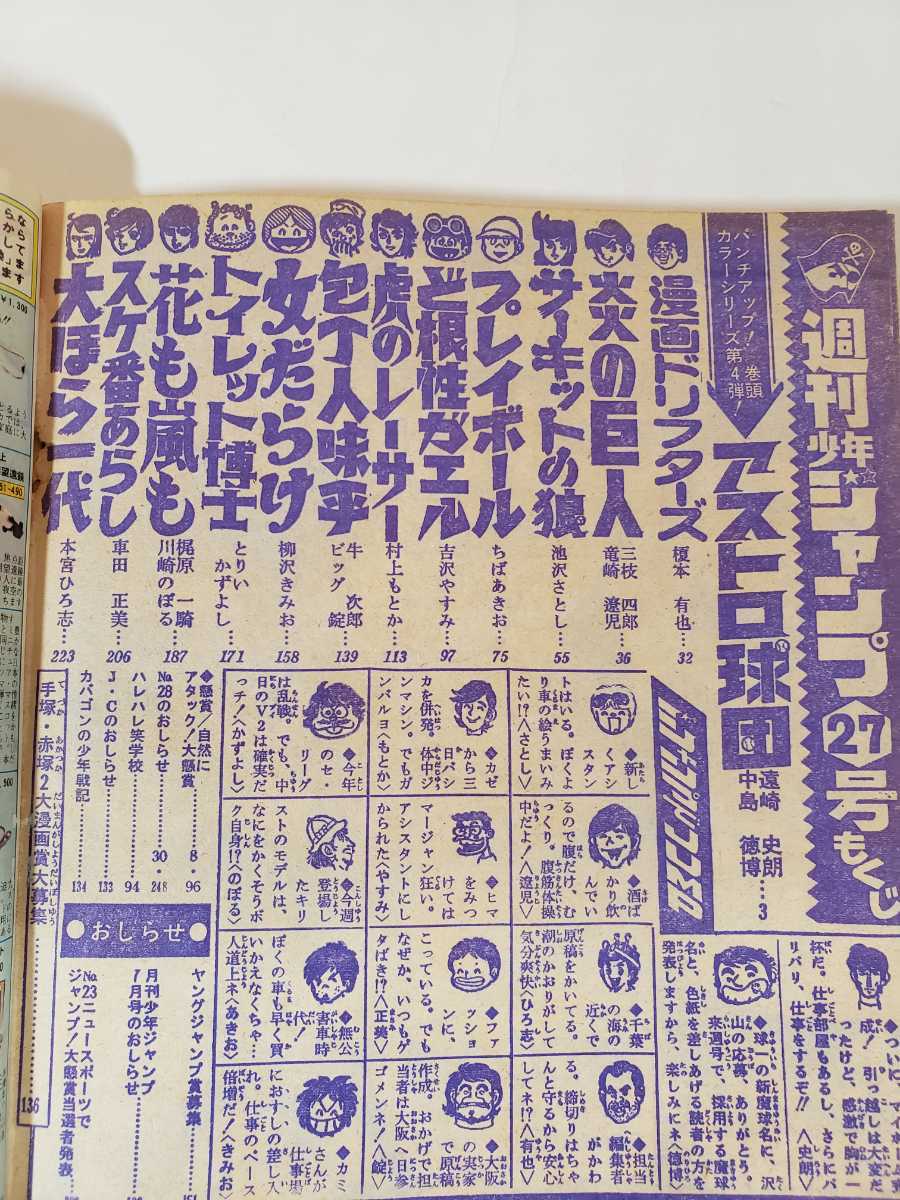 週刊少年ジャンプ27号もくじ
パンチアップ!巻頭
カラーシリーズ第4弾!
アストロ球団
遠崎 史朗
中島 徳博…3
漫画ドリフターズ
榎本 有也…32
炎の巨人
三枝 四郎
竜崎 遼児…36
サーキットの狼
池沢さとし…55
プレイボール
ちばあきお…75
ど根性ガエル
吉沢やすみ…97
虎のレーサー
村上もとか…113
包丁人味平
牛 次郎
ビッグ 錠…139
女だらけ
柳沢きみお…158
トイレット博士
とりい
かずよし…171
花も嵐も
梶原 一騎
川崎のぼる…187
スケ番あらし
車田 正美…206
大ぼら一代
本宮ひろ志…223
◆新し
くアシ
スタン
トはいる。ぼくよ
り車の絵うまいみ
たい!?〈さとし〉
◆カゼ
から三
日バシ
カを併発。体中ジ
ンマシン。でもガ
ンバルヨ〈もとか〉
◆今年
のセ・
リーグ
は乱戦。でも、中
日のV2は確実だ
っチ!〈かずよし〉
◆酒ば
かり飲
んでい
るので腹だけ、む
っくり。腹筋体操
中だよ!〈遼児〉
◆ヒマ
をみつ
けては
マージャン狂い。
アシスタントにし
かられた〈やすみ〉
◆今週
登場し
たキリ
ストのモデルは
なにをかくそうボ
ク自身!?〈のぼる〉
◆千葉
の海の
近くで
原稿をかいてる。
潮のかおりがして
気分爽快〈ひろ志〉
◆ファ
ッショ
ンに、
こっている。でも
なぜか、いつもゲ
タばき!?〈正美〉
◆無公
害車時
代!
ぼくの車も早く買
いかえなくちゃ…
人道上ネ〈あきお〉
◆担当
編集者
がかわ
る。締切りはちゃ
んと守るから安心
してネ!?〈有也〉
◆大阪
の実家
で原稿
作成。おかげで担
当者は大阪へ日参
ゴメンネ!〈錠〉
◆カミ
さんが
仕事場
におすしの差し入
れ。仕事のペース
倍増だ!〈きみお〉
成!引っ越しは大変だ
ったけど、感激で胸が一
杯だ。仕事部屋もあるし、さらにバ
リバリ、仕事をするぞ!!〈史朗〉
◆球一の新魔球名に、沢
山の応募、ありがとう。
来週号で、採用する魔球
名と、色紙を差しあげる読者の方を
発表しますから、楽しみにネ〈徳博〉
◆懸賞/自然に
アタック!大懸賞…8・96
No.28のおしらせ…30・248
ハレハレ笑学校…94
J・Cのおしらせ…133
カバゴンの少年戦記…134
手塚・赤塚2大漫画賞大募集…136
●おしらせ●
ヤングジャンプ賞募集
月刊少年ジャンプ
7月号のおしらせ
No.23ニュースポーツで
ジャンプ!大懸賞当選者発表